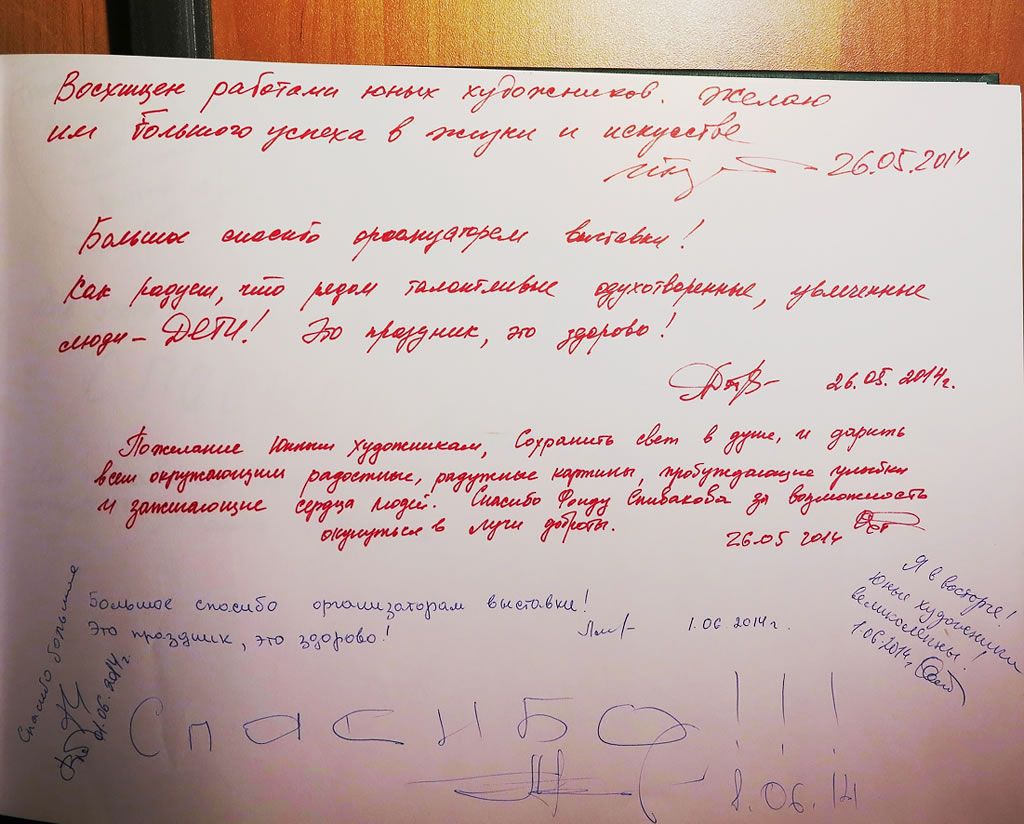 Восхищен работами юных художников. Желаю
им большого успеха в жизни и искусстве
26.05.2014
Большое спасибо организаторам выставки!
Как радует, что рядом талантливые одухотворенные, увлеченные
люди – ДЕТИ! Это праздник, это здорово!
26.05. 2014г.
Пожелание Юным художникам, Сохранить свет в душе, и дарить
всем окружающим радостные, радужные картины, пробуждающие улыбки
и зажигающие сердца людей. Спасибо Фонду Спивакова за возможность
окунуться в лучи доброты.
26.05 2014
Большое спасибо организаторам выставки!
Это праздник, это здорово!
1.06.2014г.
Я в восторге!
юные художники
великолепны!
1.06.2014г.
Спасибо большое
01.06.2014г.
Спасибо!!!
1.06.14